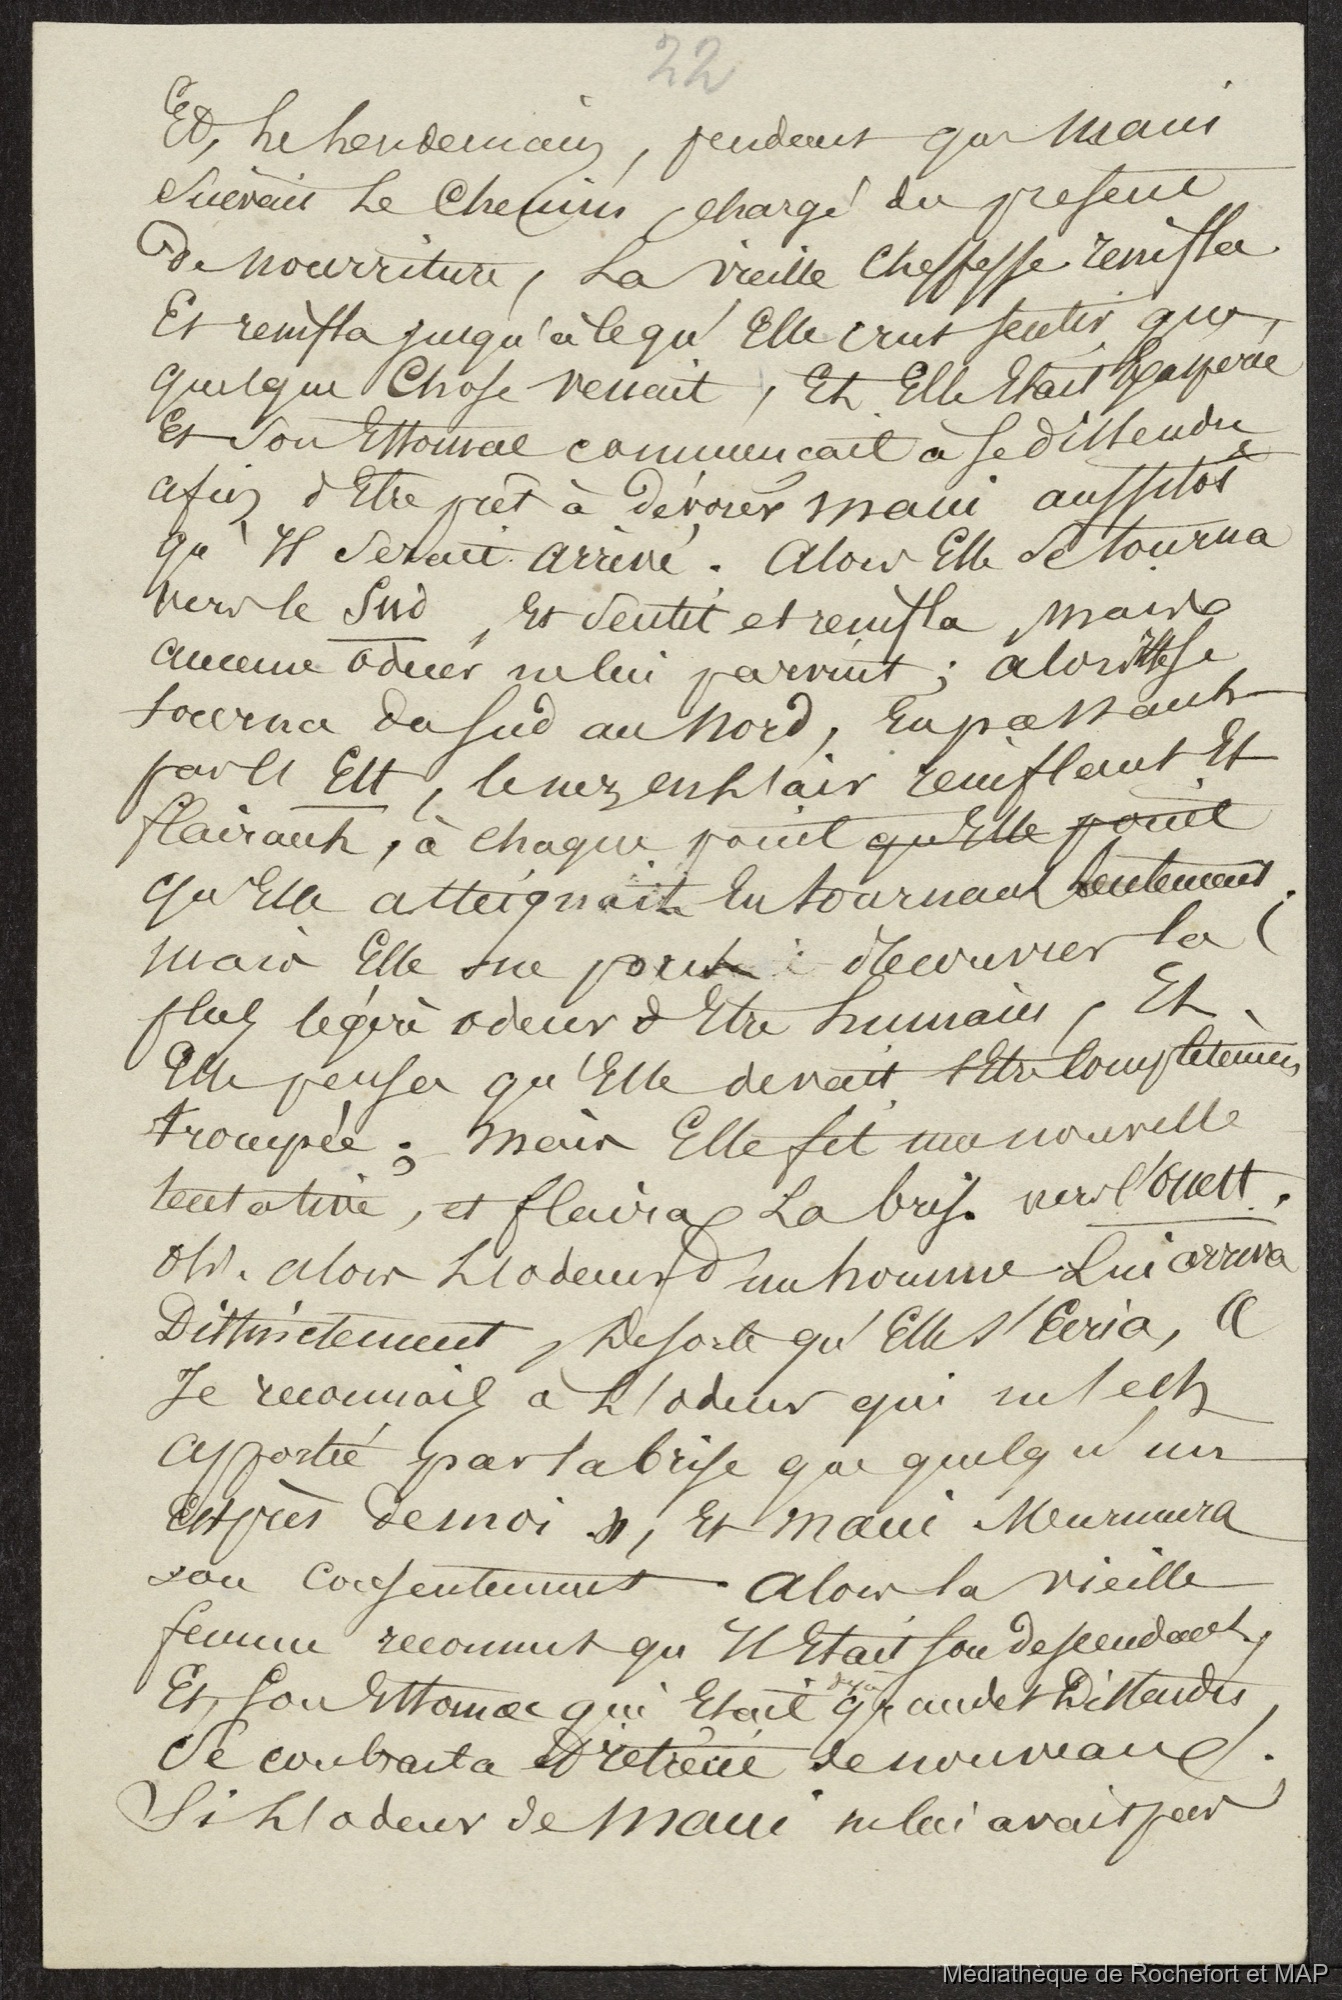 22
Et, le lendemain, pendant que Maui
suivait Le Chemin, chargé du présent
de nourriture, La vieille Cheffesse renifla
Et renifla jusqu'à ce qu'Elle crut sentir que,
quelque Chose venait, Et Elle Etait
Et son Estomac commençait à se distendre
afin d'Etre prêt à dévorer Maui aussitôt
qu'Il serait arrivé. Alors Elle se tourna
vers le Sud, Et sentit et renifla, mais
aucune odeur ne lui parvint; alors Elle se
tourna du Sud au Nord, En passant
par l'Est, le nez en l'air reniflant Et
flairant, à chaque point qu'Elle point
qu'Elle atteignait En tournant lentement.
mais Elle ne put découvrir la
plus légère odeur d'Etre humain, Et
Elle pensa qu'Elle devait s'Etre Complètement
trompée; mais Elle fit une nouvelle
tentative, et flaira La brise vers l'Ouest.
Oh. alors L'odeur d'un homme Lui arriva
Distinctement, De sorte qu'Elle s'Ecria, «
Je reconnais à L'odeur qui m'est
apportée par la brise que quelqu'un
est près de moi », Et Maui Murmura
son consentement. Alors la vieille
femme reconnut qu'Il Etait son descendant,
Et, son Estomac qui Etait déjà grand et Distendu,
Se contracta Et rétrécit de nouveau.
Si L'odeur de Maui ne lui avait pas